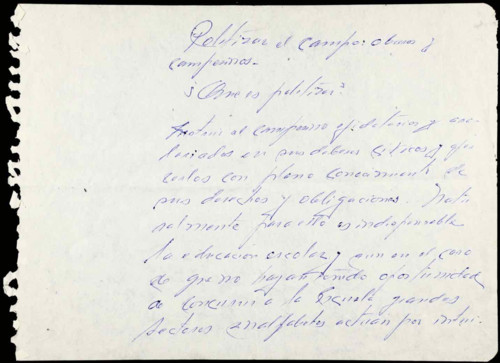 Politizar el campo: obreros y
campesinos.
¿Que es politizar?
al campesino y
en sus deberes cívicos y que
con pleno conocimiento de
sus derechos y obligaciones. Natu
ralmente para esto es indispensable
la educacion escolar y aun en el caso
de que no hayan tenido oportunidad
de concurrir a la Escuela grandes
sectores analfabetos actuan por intui-